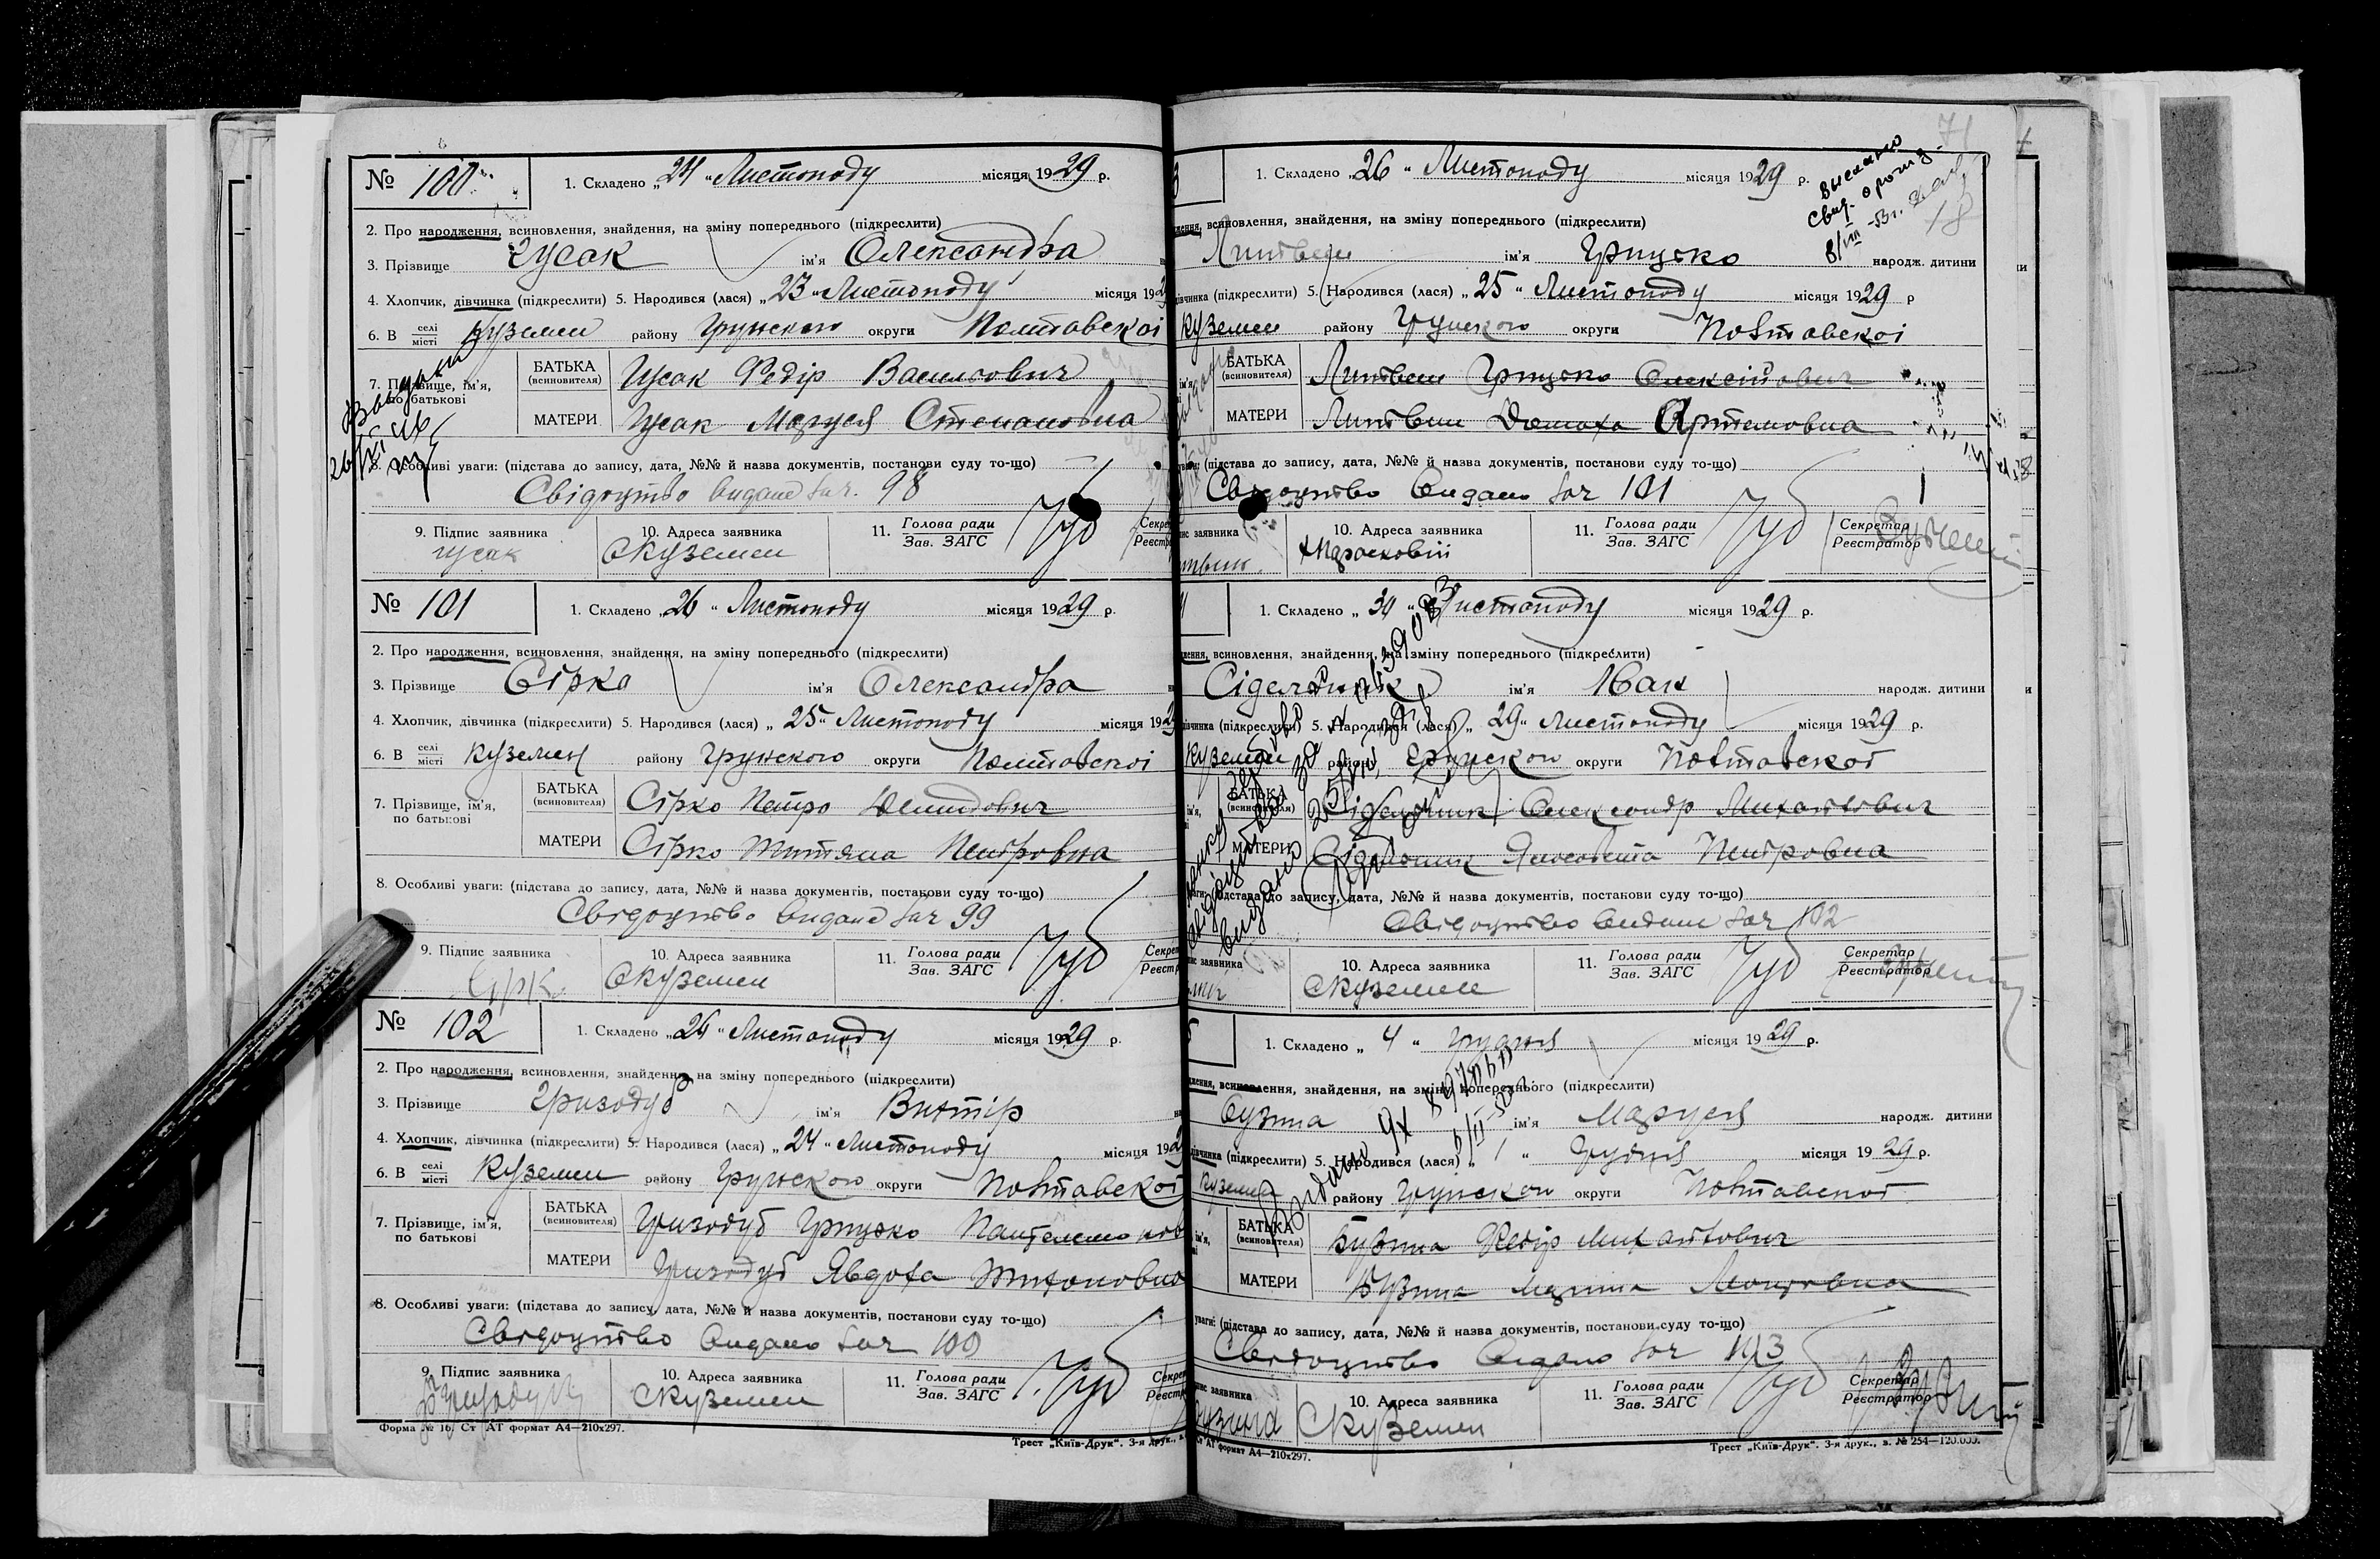 № 100
1. Складено „24 “ Листопаду місяця 1929 р.
2. Про народження, всиновлення, знайдення, на зміну попереднього (підкреслити)
3. Прізвище Гусак ім'я Олександра
4. Хлопчик, дівчинка (підкреслити) 5. Народився (лася) „ 23 “ Листопаду місяця 192
6. В селі місті Куземен району Грунського округи Полтавської
7. Прізвище, ім'я, по батькові
БАТЬКА (всиновителя) Гусак Федір Васильович
МАТЕРИ Гусак Маруся Степановна
8. Особливі уваги: (підстава до запису, дата, №№ й назва документів, постанови суду то-що)
Свідоцтво видано за № 98
9. Підпис заявника Гусак
10. Адреса заявника с Куземен
11. Голова ради Зав. ЗАГС
№ 101
1. Складено „26 “ Листопаду місяця 1929 р.
2. Про народження, всиновлення, знайдення, на зміну попереднього (підкреслити)
3. Прізвище Сірко ім'я Олександра
4. Хлопчик, дівчинка (підкреслити) 5. Народився (лася) „ 25 “ Листопаду місяця 192
6. В селі місті Куземен району Грунського округи Полтавської
7. Прізвище, ім'я, по батькові
БАТЬКА (всиновителя) Сірко Петро Демидович
МАТЕРИ Сірко Титяна Петровна
8. Особливі уваги: (підстава до запису, дата, №№ й назва документів, постанови суду то-що)
Свідоцтво видано за № 99
9. Підпис заявника
10. Адреса заявника с Куземен
11. Голова ради Зав. ЗАГС
№ 102
1. Складено „26 “ Листопаду місяця 1929 р.
2. Про народження, всиновлення, знайдення, на зміну попереднього (підкреслити)
3. Прізвище Гризодуб ім'я Виктір
4. Хлопчик, дівчинка (підкреслити) 5. Народився (лася) „ 24 “ Листопаду місяця 192
6. В селі місті Куземен району Грунського округи Повтавської
7. Прізвище, ім'я, по батькові
БАТЬКА (всиновителя) Гризодуб Грицько
МАТЕРИ Гризодуб Явдоха Тихоновна
8. Особливі уваги: (підстава до запису, дата, №№ й назва документів, постанови суду то-що)
Свідоцтво видано за № 100
9. Підпис заявника
10. Адреса заявника с Куземен
11. Голова ради Зав. ЗАГС
Форма № 16. Ст АТ формат А4—210х297.
Трест „Київ-Друк“. 3-я друк.,
1. Складено „26 “ Листопаду місяця 1929 р.
71
всиновлення, знайдення, на зміну попереднього (підкреслити)
Литвин ім'я Грицько народж. дитини
(підкреслити) 5. Народився (лася) „ 25 “ Листопаду місяця 1929 р
Куземен району Грунского округи Повтавскої
БАТЬКА (всиновителя) Литвин Грицько Олексійович
МАТЕРИ Литвин Домаха Артемовна
(підстава до запису, дата, №№ й назва документів, постанови суду то-що)
Свідоцтво видано за № 101
10. Адреса заявника
11. Голова ради Зав. ЗАГС
Секретар Реєстратор
1. Складено „ 30 “ Листопаду місяця 1929 р.
всиновлення, знайдення, на зміну попереднього (підкреслити)
ім'я Іван народж. дитини
(підкреслити) 5. Народився (лася) „ 29 “ Листопаду місяця 1929 р.
Куземен району Грунского округи Повтавської
БАТЬКА (всиновителя) Олександр Михайлович
МАТЕРИ Петровна
підстава до запису, дата, №№ й назва документів, постанови суду то-що)
Свідоцтво видано за № 102
10. Адреса заявника с Куземен
11. Голова ради Зав. ЗАГС
Секретар Реєстратор
1. Складено „ 4 “ Грудня місяця 1929 р.
всиновлення, знайдення, на зміну попереднього (підкреслити)
Бузина ім'я Маруся народж. дитини
дівчинка (підкреслити) 5. Народився (лася) „ 1 “ Грудня місяця 1929 р.
Куземен району Грунского округи Повтавської
БАТЬКА (всиновителя) Бузина Федір Михайлович
МАТЕРИ Бузина
уваги: (підстава до запису, дата, №№ й назва документів, постанови суду то-що)
Свідоцтво видано за № 103
Бузина
10. Адреса заявника с Куземен
11. Голова ради Зав. ЗАГС
Секретар Реєстратор
Ст АТ формат А4—210х297.
Трест „Київ-Друк“. 3-я друк., з. № 254—120.000.